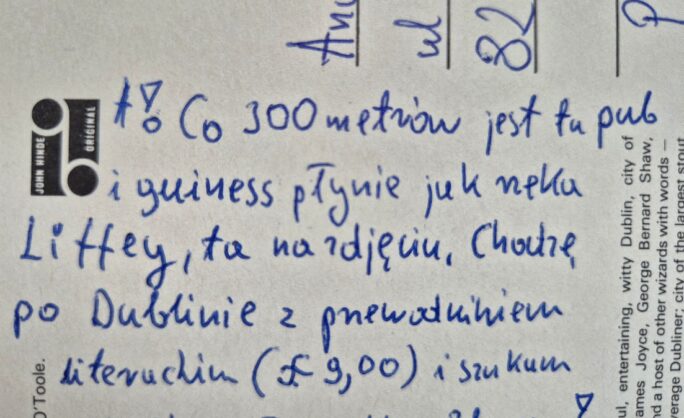 A! Co 300 metrów jest tu pub
i guiness płynie jak rzeka
Liffey, ta na zdjęciu. Chodzę
po Dublinie z przewodnikiem
literackim (£ 9,00) i szukam
ul
82
JOHN HINDE
ORIGINAL
O'Toole.
ul, entertaining, witty Dublin, city of
ames Joyce, George Bernard Shaw,
nd a host of other wizards with words –
verage Dubliner; city of the largest stout